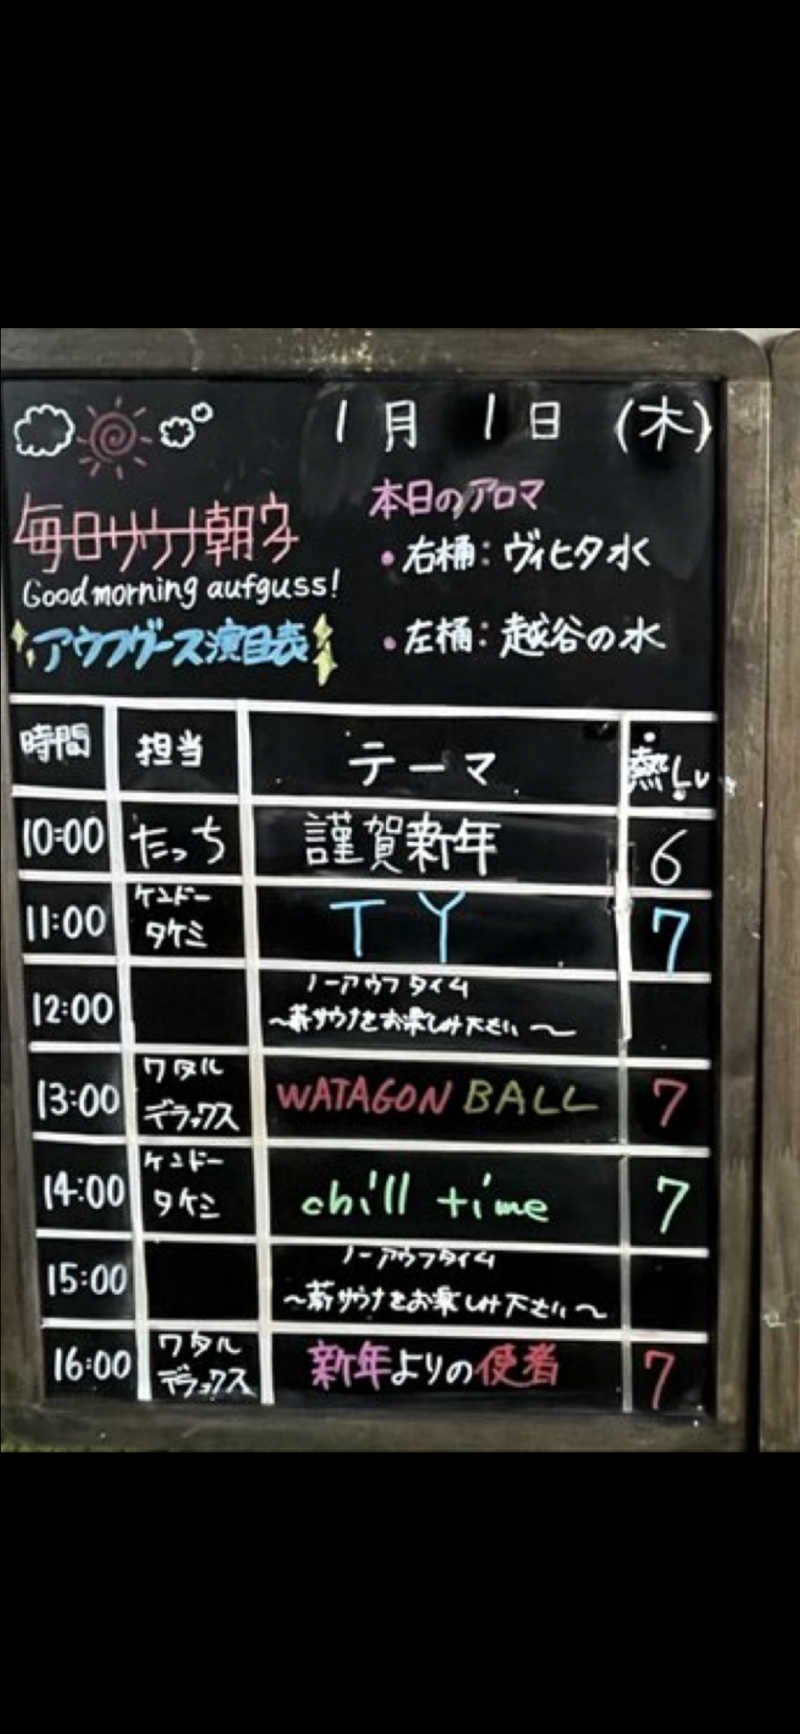 1月 1日 (木)
毎日サウナ朝ウネ
Good morning aufguss!
アウフグース演目表
本日のアロマ
・右桶：ヴィヒタ水
・左桶：越谷の水
時間 担当 テーマ 熱Lv
10:00 たっち 謹賀新年 6
11:00 ケンドータケミ TY 7
12:00 ノーアウフタイム
〜薪サウナをお楽しみ下さい〜
13:00 ワタルデラックス WATAGON BALL 7
14:00 ケンドータケミ chill time 7
15:00 ノーアウフタイム
〜薪サウナをお楽しみ下さい〜
16:00 ワタルデラックス 新年よりの使者 7